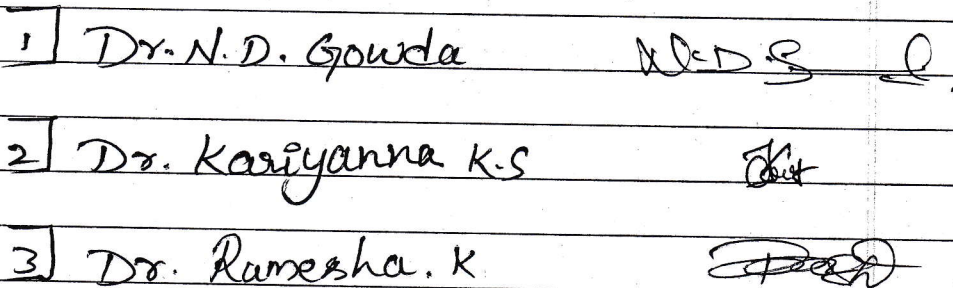 1 Dr. N. D. Gowda N.D.G
2 Dr. Kariyanna K.S
3 Dr. Ramesha. K